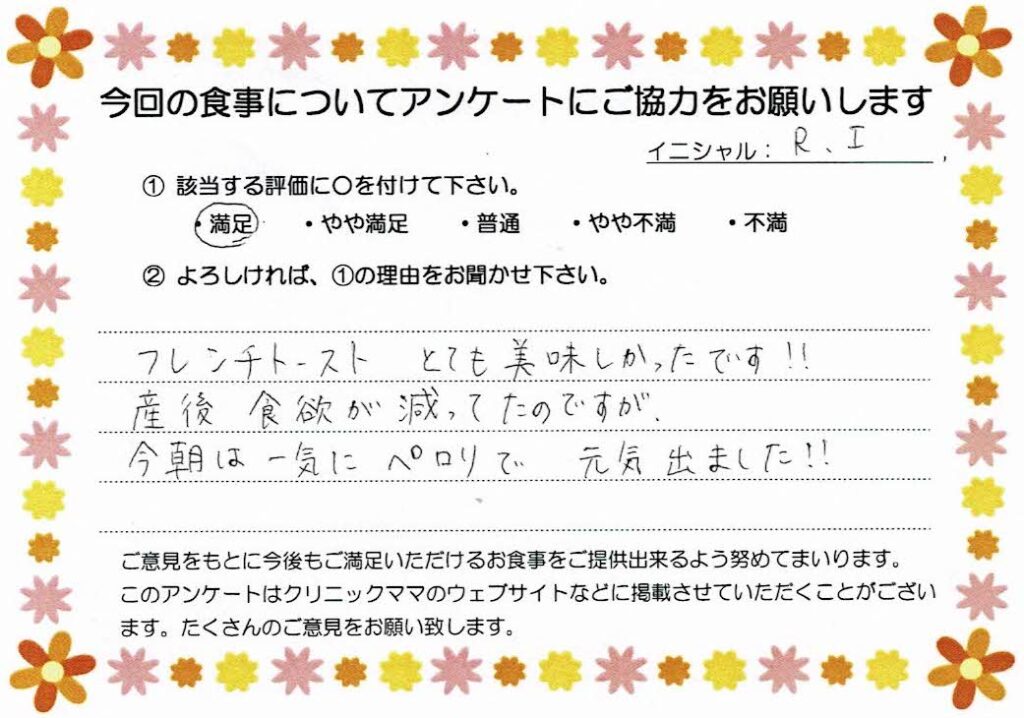 今回の食事についてアンケートにご協力をお願いします
イニシャル： R、I
① 該当する評価に〇を付けて下さい。
・満足 ・やや満足 ・普通 ・やや不満 ・不満
② よろしければ、①の理由をお聞かせ下さい。
フレンチトースト とても美味しかったです!!
産後 食欲が減ってたのですが、
今朝は一気にペロリで 元気出ました!!
ご意見をもとに今後もご満足いただけるお食事をご提供出来るよう努めてまいります。
このアンケートはクリニックママのウェブサイトなどに掲載させていただくことがござい
ます。たくさんのご意見をお願い致します。